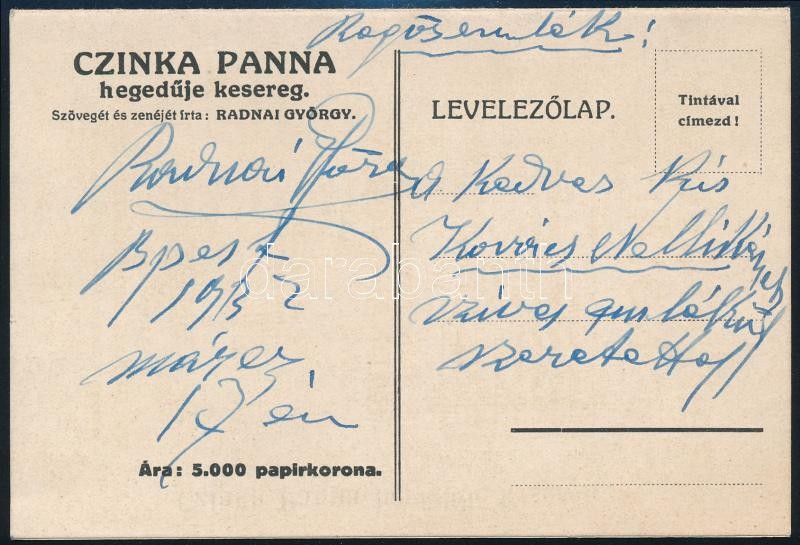 CZINKA PANNA
hegedűje kesereg.
Szövegét és zenéjét írta: RADNAI GYÖRGY.
Radnai
Bpest
1932
márcz
17 én
Ára: 5.000 papirkorona.
LEVELEZŐLAP.
Tintával
címezd!
A Kedves Kis
Kovács Nelli
szíves emlékül
szeretettel
darabanth